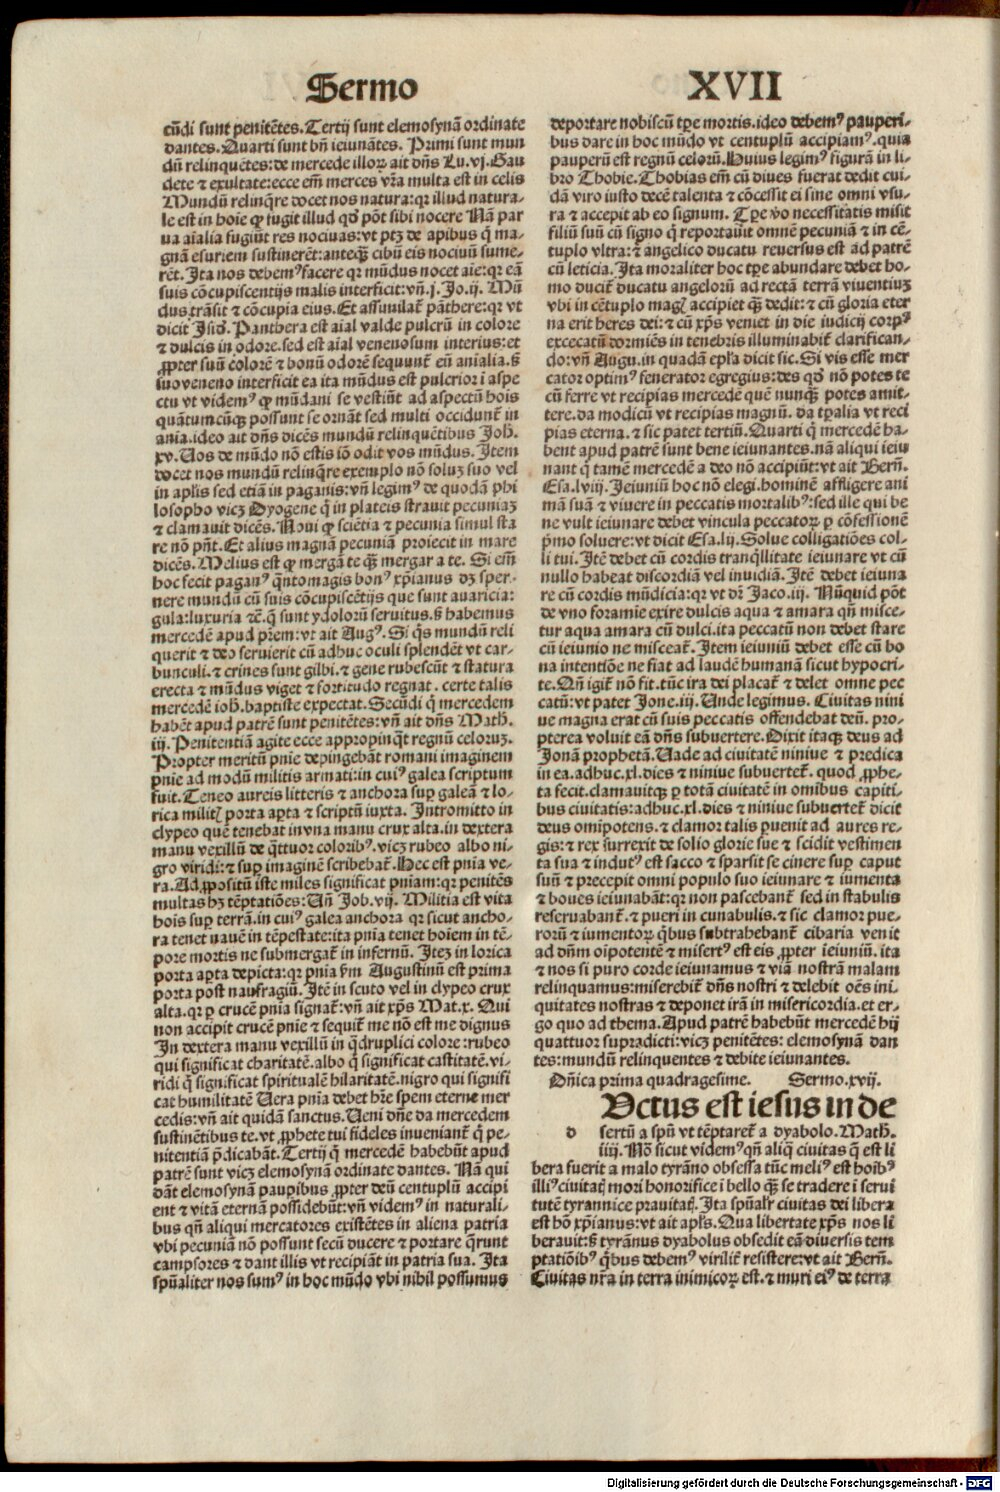 Sermo
cūdi sunt penitētes. Tertij sunt elemosynā ordinate
dantes. Quarti sunt bn̄ ieiunātes. Primi sunt mun
dū relinquētes: de mercede illoꝝ ait dn̄s Lu. vj. Gau
dete ⁊ exultate: ecce em̄ merces vr̄a multa est in celis
Mundū relinq̄re docet nos natura: qꝛ illud natura-
le est in hoīe ꝙ fugit illud qd̄ pōt sibi nocere Nā par
ua aīalia fugiūt res nociuas: vt ptꝫ de apibus q̄ ma-
gnā esuriem sustinerēt: anteqꝫ cibū eis nociuū sume-
rēt. Ita nos debemꝰ facere qꝛ mūdus nocet aīe: qꝛ eā
suis cōcupiscentijs malis interficit: vn̄. j. Jo. ij. Mū
dus trāsit ⁊ cōcupīa eius. Et assimilat᷑ pāthere: qꝛ vt
dicit Isid̄. Panthera est aīal valde pulcrū in colore
⁊ dulcis in odore. sed est aīal venenosum interius: et
ꝓpter suū colorē ⁊ bonū odorē sequunt᷑ eū anīalia. s̄
suo veneno interficit ea ita mūdus est pulcrior ī aspe
ctu vt videmꝰ ꝙ mūdani se vestiūt ad aspectū hoīs
quātumcūqꝫ possunt se ornāt sed multi occidunt᷑ in
anīa. ideo ait dn̄s dicēs mundū relinquētibus Joh̄.
xv. Uos de mūdo nō estis iō odit vos mūdus. Item
docet nos mundū relinq̄re exemplo nō soluꝫ suo vel
in apl̄is sed etiā in paganis: vn̄ legimꝰ de quodā phi
losopho vicꝫ Dyogene q̄ in plateis strauit pecuniaꝫ
⁊ clamauit dicēs. Noui ꝙ sciētia ⁊ pecunia simul sta
re nō pn̄t. Et alius magnā pecuniā proiecit in mare
dicēs. Melius est ꝙ mergā te qꝫ mergar a te. Si em̄
hoc fecit paganꝰ q̄ntomagis bonꝰ xp̄ianus dꝫ sper-
nere mundū cū suis cōcupiscētijs que sunt auaricia:
gula: luxuria ⁊c̄. q̄ sunt ydolorū seruitus. s̄ habemus
mercedē apud pr̄em: vt ait Augꝰ. Si q̄s mundū reli
querit ⁊ deo seruierit cū adhuc oculi splendēt vt car-
bunculi. ⁊ crines sunt gilbi. ⁊ gene rubescūt ⁊ statura
erecta ⁊ mūdus viget ⁊ fortitudo regnat. certe talis
mercedē ioh̄. baptiste expectat. Secūdi q̄ mercedem
habēt apud patrē sunt penitētes: vn̄ ait dn̄s Math̄.
iij. Penitentiā agite ecce appropinq̄t regnū celoruꝫ.
Propter meritū pnīe depingebāt romani imaginem
pnīe ad modū militis armati: in cuiꝰ galea scriptum
fuit. Teneo aureis litteris ⁊ anchora suꝑ galeā ⁊ lo-
rica milit̄ porta aꝑta ⁊ scriptū iuxta. Intromitto in
clypeo quē tenebat in vna manu crux alta. in dextera
manu vexillū de q̄ttuor coloribꝰ. vicꝫ rubeo albo ni-
gro viridi: ⁊ suꝑ imaginē scribebat᷑. Hec est pnīa ve-
ra. Ad ꝓpositū iste miles significat pn̄iam: qꝛ penitēs
multas hꝫ tēptatiōes: Un̄ Job. vij. Militia est vita
hoīs suꝑ terrā. in cuiꝰ galea anchora qꝛ sicut ancho-
ra tenet nauē in tēpestate: ita pnīa tenet hoīem in tē-
pore mortis ne submergat᷑ in infernū. Iteꝫ in lorica
porta aꝑta depicta: qꝛ pnīa ẜm Augustinū est prima
porta post naufragiū. Itē in scuto vel in clypeo crux
alta. qꝛ ꝑ crucē pnīa signat᷑: vn̄ ait xp̄s Mat. x. Qui
non accipit crucē pnīe ⁊ sequit᷑ me nō est me dignus
In dextera manu vexillū in q̄druplici colore: rubeo
qui significat charitatē. albo q̄ significat castitatē. vi-
ridi q̄ significat spiritualē hilaritatē. nigro qui signifi
cat humilitatē Uera pnīa debet hr̄e spem eterne mer
cedis: vn̄ ait quidā sanctus. Ueni dn̄e da mercedem
sustinētibus te. vt ꝓphete tui fideles inueniant᷑ q̄ pe-
nitentiā p̄dicabāt. Tertij q̄ mercedē habebūt apud
patrē sunt vicꝫ elemosynā ordinate dantes. Nā qui
dāt elemosynā pauꝑibus ꝓpter deū centuplū accipi
ent ⁊ vitā eternā possidebūt: vn̄ videmꝰ in naturali-
bus qn̄ aliqui mercatores existētes in aliena patria
vbi pecuniā nō possunt secū ducere ⁊ portare q̄runt
campsores ⁊ dant illis vt recipiāt in patria sua. Ita
spūaliter nos sumꝰ in hoc mūdo vbi nihil possumus
XVII
deportare nobiscū tꝑe mortis. ideo debemꝰ pauperi-
bus dare in hoc mūdo vt centuplū accipiamꝰ. quia
pauperū est regnū celorū. Huius legimꝰ figurā in li-
bro Thobie. Thobias em̄ cū diues fuerat dedit cui-
dā viro iusto decē talenta ⁊ cōcessit ei sine omni vsu-
ra ⁊ accepit ab eo signum. Tꝑe v̄o necessitatis misit
filiū suū cū signo q̄ reportauit omnē pecuniā ⁊ in cē-
tuplo vltra: ⁊ angelico ducatu reuersus est ad patrē
cū leticia. Ita moraliter hoc tꝑe abundare debet ho-
mo ducit᷑ ducatu angelorū ad rectā terrā viuentiuꝫ
vbi in cētuplo maḡ accipiet qꝫ dedit: ⁊ cū gloria eter
na erit heres dei: ⁊ cū xp̄s veniet in die iudicij corpꝰ
excecatū dormiēs in tenebris illuminabit᷑ clarifican-
do: vn̄ Augu. in quadā epl̄a dicit sic. Si vis esse mer
cator optimꝰ fenerator egregius: des qd̄ nō potes te
cū ferre vt recipias mercedē quē nunqꝫ potes amit-
tere. da modicū vt recipias magnū. da tꝑalia vt reci
pias eterna. ⁊ sic patet tertiū. Quarti q̄ mercedē ha-
bent apud patrē sunt bene ieiunantes. nā aliqui ieiu
nant q̄ tamē mercedē a deo nō accipiūt: vt ait Bern̄.
Esa. lviij. Ieiuniū hoc nō elegi. hominē affligere ani
mā suā ⁊ viuere in peccatis mortalibꝰ: sed ille qui be
ne vult ieiunare debet vincula peccatoꝝ ꝑ cōfessionē
p̄mo soluere: vt dicit Esa. lij. Solue colligatiōes col-
li tui. Itē debet cū cordis tranq̄llitate ieiunare vt cū
nullo habeat discordiā vel inuidiā. Itē debet ieiuna
re cū cordis mūdicia: qꝛ vt dr̄ Jaco. iij. Nūquid pōt
de vno foramīe exire dulcis aqua ⁊ amara qn̄ misce-
tur aqua amara cū dulci. ita peccatū non debet stare
cū ieiunio ne misceat᷑. Item ieiuniū debet esse cū bo
na intentiōe ne fiat ad laudē humanā sicut hypocri-
te. Qn̄ igit᷑ nō fit. tūc ira dei placat᷑ ⁊ delet omne pec
catū: vt patet Jone. iij. Unde legimus. Ciuitas nini
ue magna erat cū suis peccatis offendebat deū. pro-
pterea voluit eā dn̄s subuertere. Dixit itaqꝫ deus ad
Jonā prophetā. Uade ad ciuitatē niniue ⁊ predica
in ea. adhuc. xl. dies ⁊ niniue subuertet᷑. quod ꝓphe-
ta fecit. clamauitqꝫ ꝑ totā ciuitatē in omībus capiti-
bus ciuitatis: adhuc. xl. dies ⁊ niniue subuertet᷑ dicit
deus omīpotens. ⁊ clamor talis ꝑuenit ad aures re-
gis: ⁊ rex surrexit de solio glorie sue ⁊ scidit vestimen
ta sua ⁊ indutꝰ est sacco ⁊ sparsit se cinere suꝑ caput
suū ⁊ precepit omni populo suo ieiunare ⁊ iumenta
⁊ boues ieiunabāt: qꝛ non pascebant᷑ sed in stabulis
reseruabant᷑. ⁊ pueri in cunabulis. ⁊ sic clamor pue-
rorū ⁊ iumentoꝝ q̄bus subtrahebant᷑ cibaria venit
ad dn̄m oīpotentē ⁊ misertꝰ est eis ꝓpter ieiuniū. ita
⁊ nos si puro corde ieiunamus ⁊ viā nostrā malam
relinquamus: miserebit᷑ dn̄s nostri ⁊ delebit oēs ini-
quitates nostras ⁊ deponet irā in misericordia. et er-
go quo ad thema. Apud patrē habebūt mercedē hij
quattuor supradicti: vicꝫ penitētes: elemosynā dan
tes: mundū relinquentes ⁊ debite ieiunantes.
Dn̄ica prima quadragesime. Sermo. xvij.
Uctus est iesus in de
d sertū a spū vt tēptaret᷑ a dyabolo. Math̄.
iiij. Nō sicut videmꝰ qn̄ aliq̄ ciuitas q̄ est li
bera fuerit a malo tyrāno obsessa tūc meliꝰ est hoībꝰ
illiꝰ ciuitat̄ mori honorifice ī bello qꝫ se tradere ī serui
tutē tyrannice prauitat̄. Ita spūalr̄ ciuitas dei libera
est hō xp̄ianus: vt ait apl̄s. Qua libertate xp̄s nos li
berauit: s̄ tyrānus dyabolus obsedit eā diuersis tem
ptatiōibꝰ q̄bus debemꝰ virilit᷑ resistere: vt ait Bern̄.
Ciuitas nr̄a in terra inimicoꝝ est. ⁊ muri eiꝰ de terra
Digitalisierung gefördert durch die Deutsche Forschungsgemeinschaft - DFG